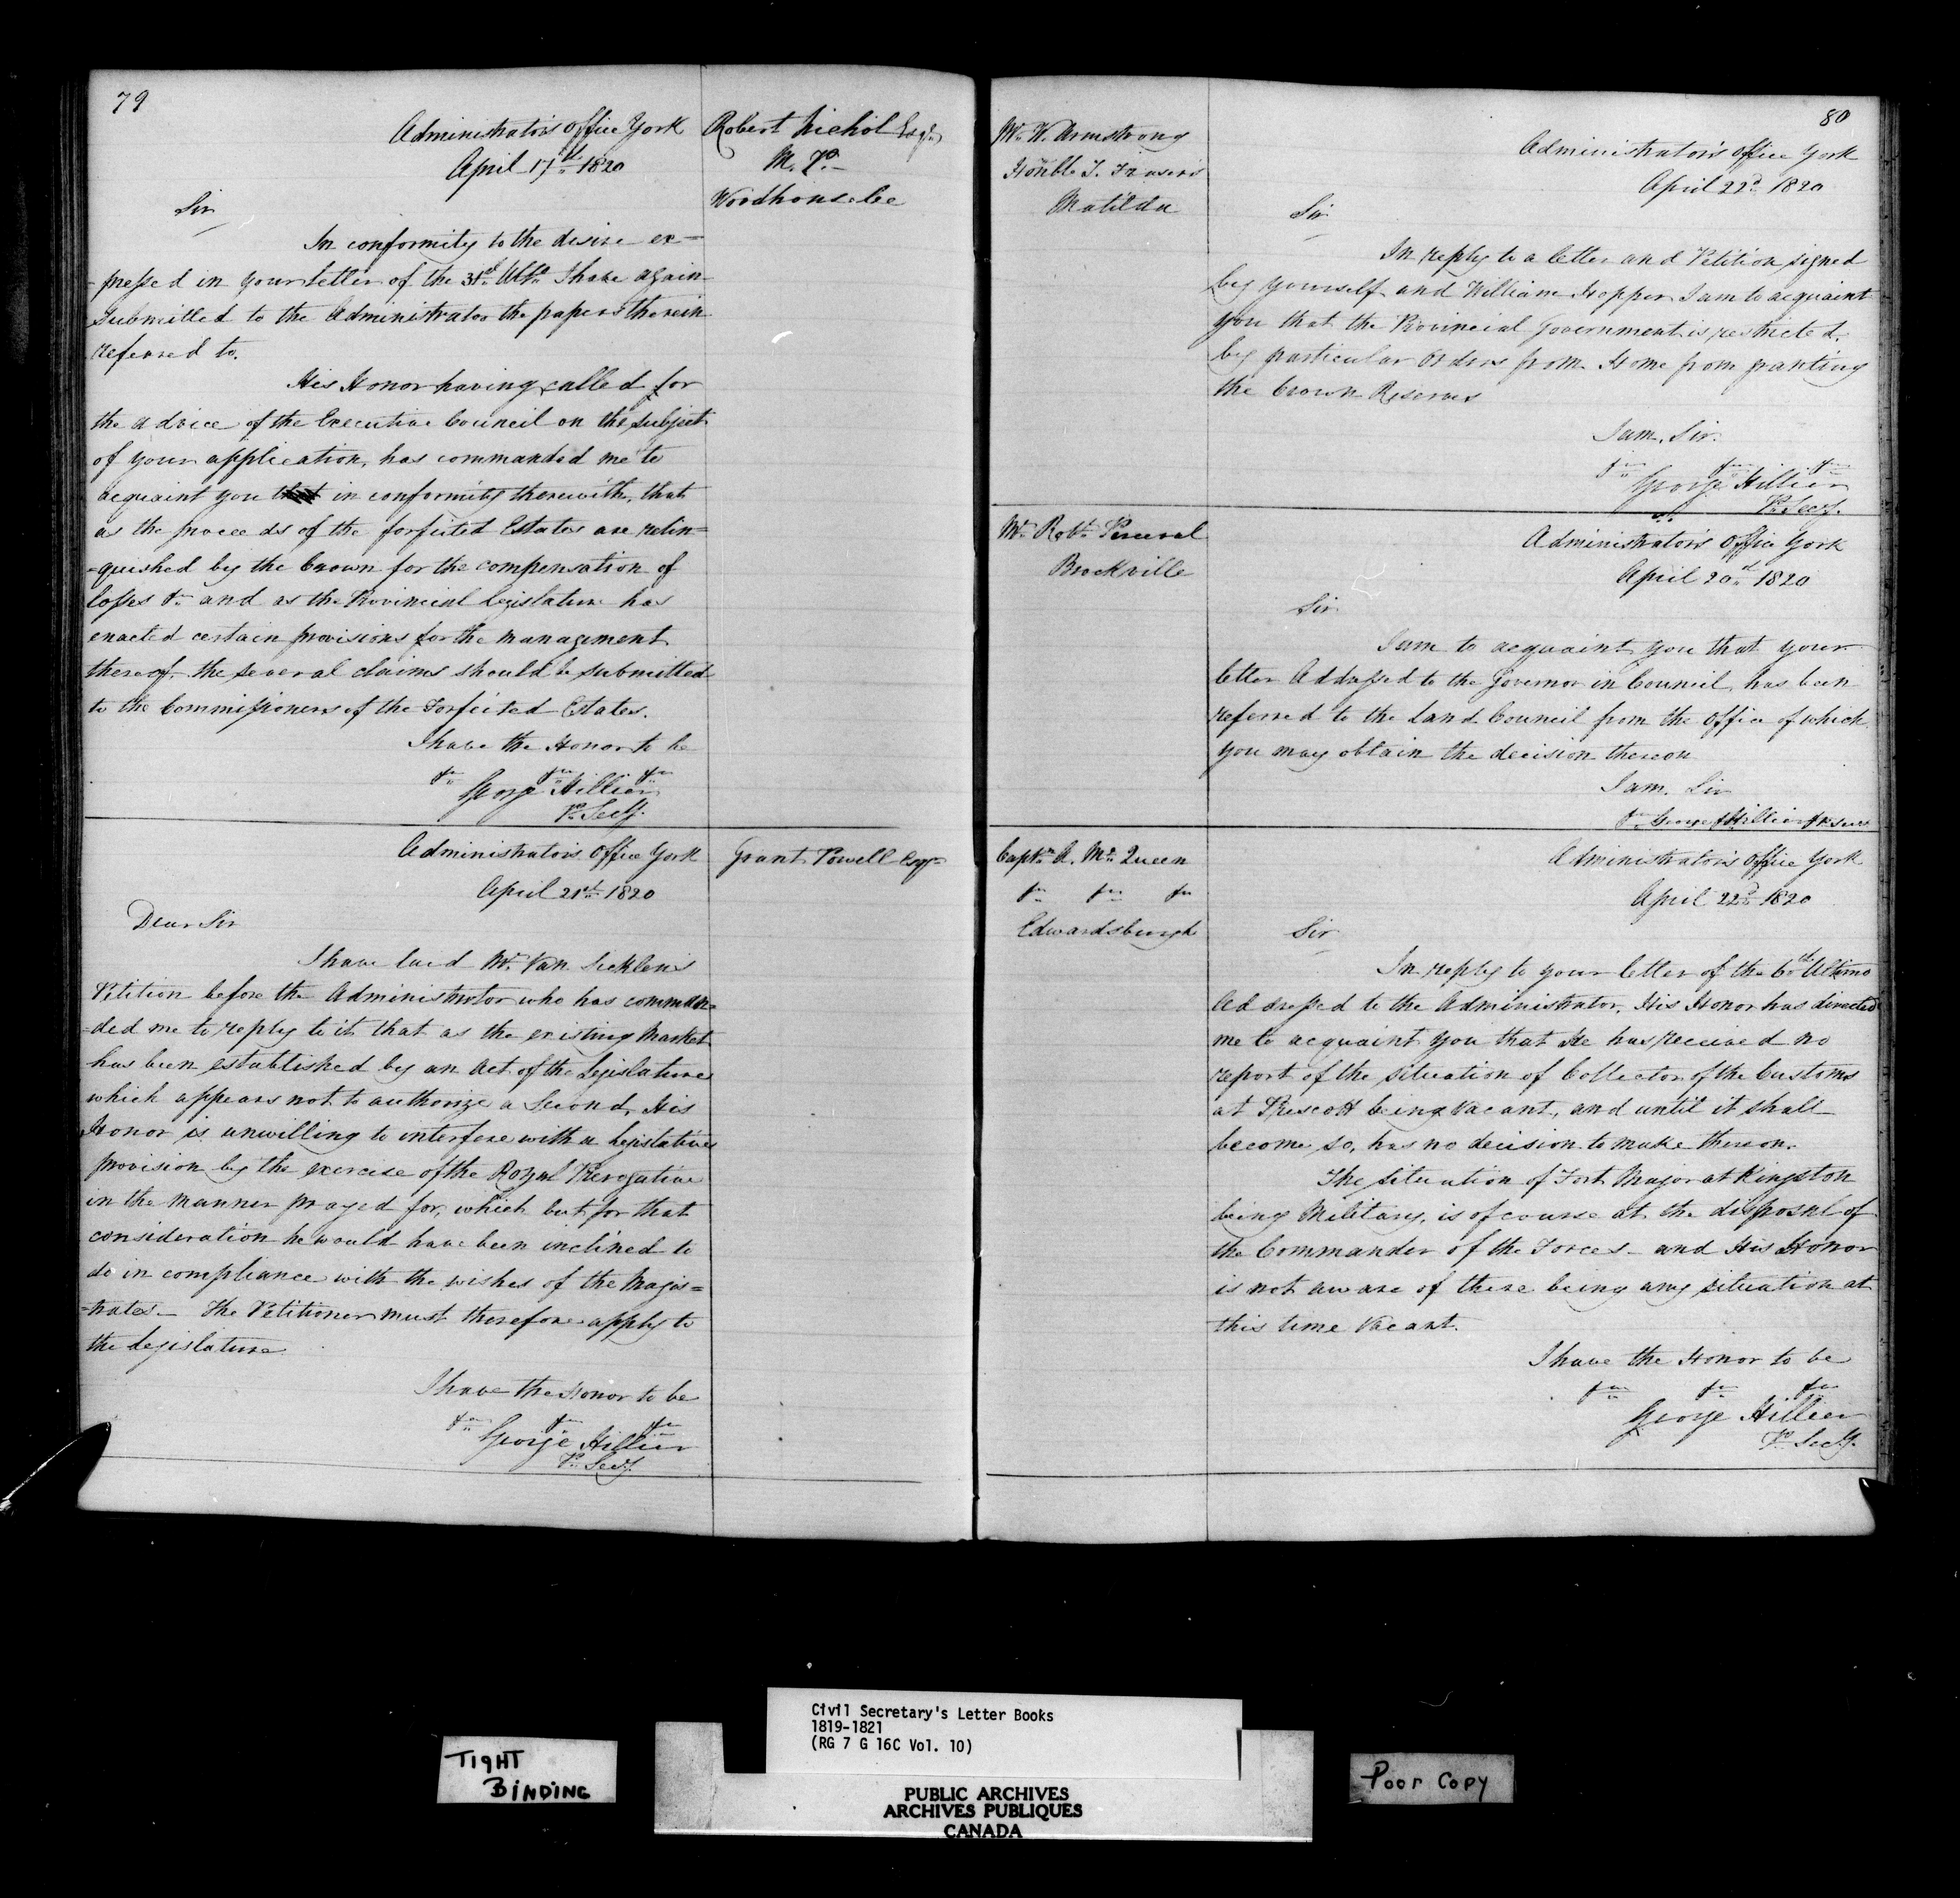 79
Administrator's Office York
April 17th 1820
Robert Nichol Esqr
M. P.
Woodhouse &c
Sir
In conformity to the desire ex=
-pressed in your letter of the 31st Ulto I have again
submitted to the Administrator the papers therein
refered to.
His Honor having called for
the advice of the Executive Council on the subject
of your application, has commanded me to
acquaint you that in conformity therewith, that
as the proceeds of the forfeited Estates are relin=
=quished by the Crown for the compensation of
losses &c and as the Provincial Legislature has
enacted certain provisions for the management
thereof, the several claims should be submitted
to the Commissioners of the Forfeited Estates.
I have the Honor to be
&c &c &c
George Hillier
P. Secy.
Administrator's Office York
April 21st 1820
Grant Powell Esqr
Dear Sir
I have laid Mr. Van Sicklen's
Petition before the Administrator who has comman=
=ded me to reply to it that as the existing Market
has been established by an Act of the Legislature
which appears not to authorize a Second, His
Honor is unwilling to interfere with a Legislative
provision by the exercise of the Royal Prerogative
in the manner prayed for, which but for that
consideration he would have been inclined to
do in compliance with the wishes of the Magis=
=trates. The Petitioner must therefore apply to
the Legislature
I have the Honor to be
&c &c &c
George Hillier
P. Secy.
80
Mr. W. Armstrong
Honble T. Frasers
Matilda
Administrator's Office York
April 22d 1820
Sir
In reply to a letter and Petition signed
by yourself and William Hopper I am to acquaint
you that the Provincial Government is restricted
by particular Orders from Home from granting
the Crown Reserves
I am, Sir
&c &c &c
George Hillier
P. Secy.
Mr. Robt. Perceval
Brockville
Administrator's Office York
April 20th 1820
Sir
I am to acquaint you that your
letter Addressed to the Governor in Council, has been
referred to the Land Council from the Office of which
you may obtain the decision thereon
I am, Sir
&c George Hillier P. Secy
Captn A. Mc Queen
&c &c &c
Edwardsburgh
Administrator's Office York
April 22d 1820
Sir
In reply to your letter of the 6th Ultimo
Addressed to the Administrator, His Honor has directed
me to acquaint you that He has received no
report of the situation of Collector of the Customs
at Prescott being vacant, and until it shall
become so, has no decision to make thereon.
The situation of Fort Major at Kingston
being Military, is of course at the disposal of
the Commander of the Forces - and His Honor
is not aware of there being any situation at
this time Vacant.
I have the Honor to be
&c &c &c
George Hillier
P. Secy.
TIGHT
BINDING
Civil Secretary's Letter Books
1819-1821
(RG 7 G 16C Vol. 10)
PUBLIC ARCHIVES
ARCHIVES PUBLIQUES
CANADA
Poor Copy